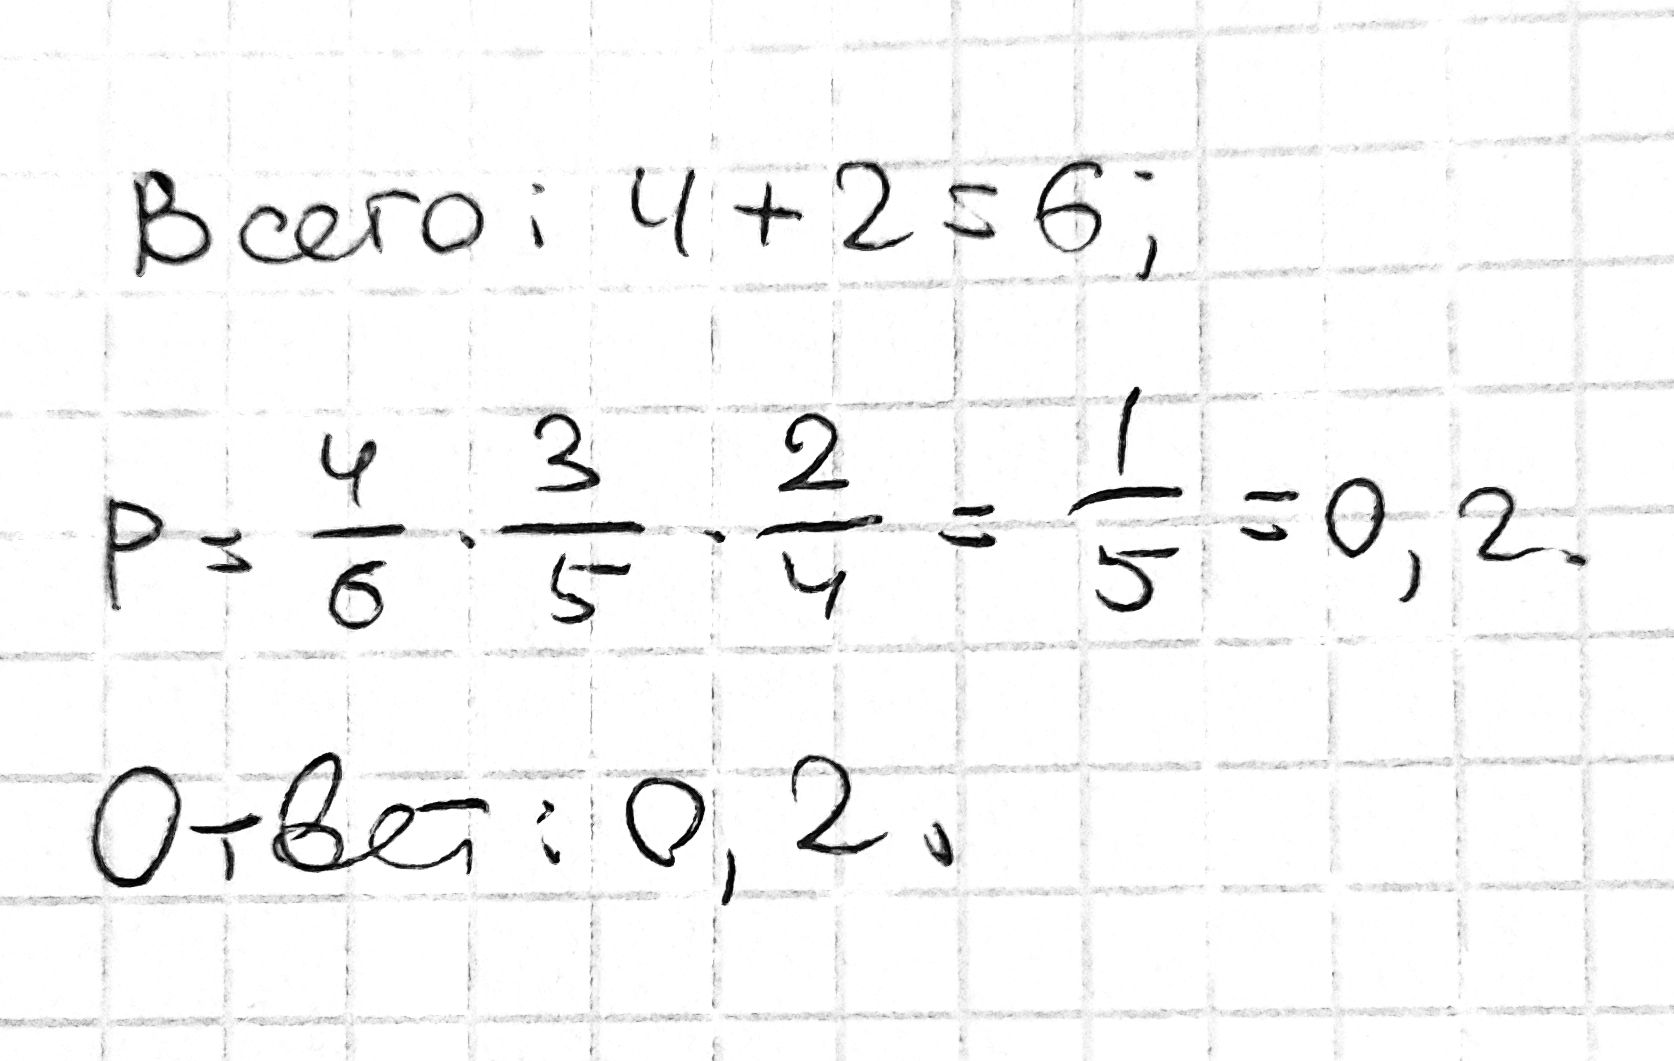 Всего: 4 + 2 = 6;
P = 4/6 · 3/5 · 2/4 = 1/5 = 0,2.
Ответ: 0,2.